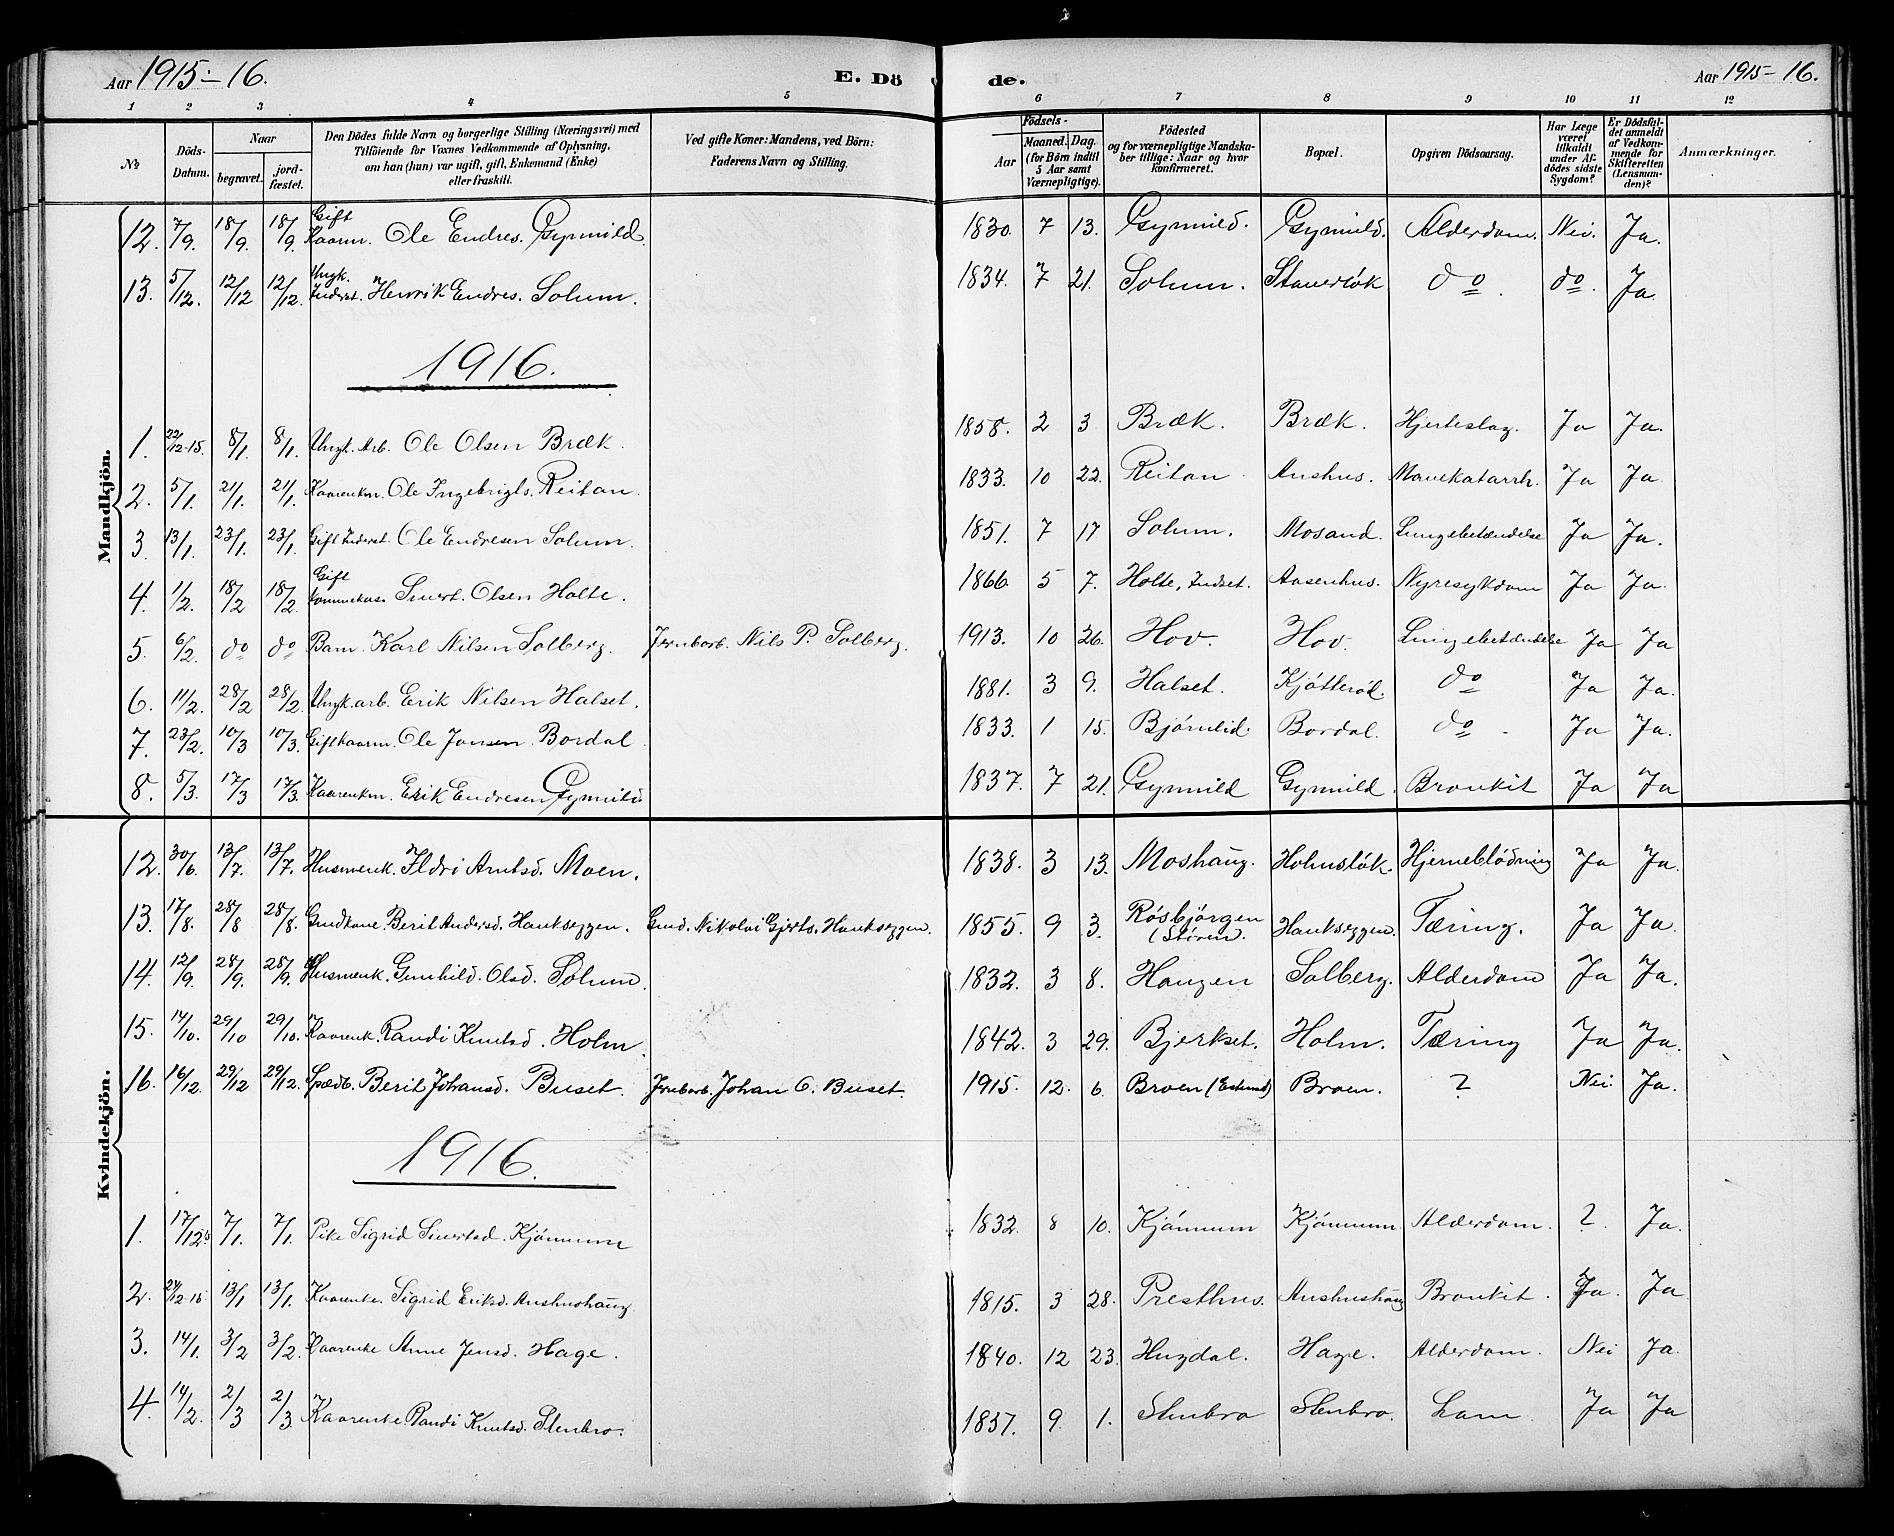 Aar 1915-16.
E. Dö de.
Aar 1915-16.
1 2 3 4 5 6 7 8 9 10 11 12
No.
Döds-Datum.
Naar
begravet.
jord-fæstet.
Den Dödes fulde Navn og borgerlige Stilling (Næringsvei) med
Tilföiende for Voxnes Vedkommende af Oplysning,
om han (hun) var ugift, gift, Enkemand (Enke)
eller fraskilt.
Ved gifte Koner: Mandens, ved Börn:
Faderens Navn og Stilling.
Födsels-
Aar
Maaned. Dag.
(for Börn indtil
5 Aar samt
Værnepligtige).
Födested
og for værnepligtige Mandska-
ber tillige: Naar og hvor
konfirmeret.
Bopæl.
Opgiven Dödsaarsag.
Har Læge
været
tilkaldt
under Af-
dödes sidste
Sygdom?
Er Dödsfal-
det anmeldt
af Vedkom-
mende for
Skifteretten
(Lensman-
den)?
Anmærkninger.
Mandkjön.
12. 7/9. 18/9. 18/9. Gift Kaarm. Ole Endres. Gynnild. 1830. 7 13. Gynnild. Gynnild. Alderdom. Nei. Ja.
13. 5/12. 12/12 12/12. Ungk. Inderst. Henrik Endres. Solum. 1834. 7 21. Solum. Stauerløk do. do. Ja.
1916.
1. 22/12-15. 8/1 8/1. Ungk. Arb. Ole Olsen Bræk. 1858. 2 3 Bræk. Bræk. Hjerteslag. Ja Ja.
2. 5/1. 21/1. 21/1. Kaarenkm. Ole Ingebrigts. Reitan. 1833. 10 22. Reitan Aushus. Mavekatarrh. Ja Ja.
3. 13/1. 23/1. 23/1. Gift Inderst. Ole Endresen Solum. 1851. 7 17 Solum. Mosand. Lungebetændelse Ja Ja.
4. 1/2. 18/2 18/2. Gift Sivert. Olsen Holte. 1866 5 7. Holte, Indset. Aasenhus. Nyresykdom Ja Ja.
5. 6/2. do do Barn Karl Nilsen Solberg. Jernbarb. Nils P. Solberg. 1913. 10 26. Hov. Hov. Lungebetændelse Ja Ja
6. 11/2. 28/2 28/2. Ungk. arb. Erik Nilsen Halset. 1881. 3 9. Halset. Kjötteröd. do Ja Ja.
7. 23/2. 10/3 10/3. Gift kaarm. Ole Jonsen Bordal. 1833. 1 15. Bjørnlid. Bordal. do. Ja Ja.
8. 5/3. 17/3 17/3. Kaarenkm. Erik Endresen Gynnild. 1837. 7 21. Gynnild Gynnild. Bronkit Ja Ja
Kvindekjön.
12. 30/6. 13/7. 13/7. Husmenk. Ildri Arntsd. Moen. 1838. 3 13. Moshaug. Holmsløk. Hjerneblödning Ja Ja.
13. 17/8. 28/8 28/8. Gmdkone Berit Andersd. Haukseggen. Gmd. Nikolai Gjerts. Haukseggen. 1855. 9 3. Røsbjørgen (Støren. Haukseggen. Tæring. Ja Ja.
14. 12/9. 28/9. 28/9. Husmenk. Gunhild Olsd. Solum. 1832. 3 8. Haugen Solberg. Alderdom Ja Ja.
15. 14/10. 29/10 29/10. Kaarenk. Randi Knutsd. Holm. 1842. 3 29. Bjerkset. Holm. Tæring Ja Ja.
16. 16/12. 29/12 29/12. Spædb. Berit Johansd. Buset. Jernbarb. Johan O. Buset. 1915. 12. 6. Broen Broen. ? Nei. Ja.
1916.
1. 17/12 15 7/1. 7/1. Pike Sigrid Sivertsd. Kjönnum 1832. 8 10. Kjönnum Kjönnum Alderdom. ?. Ja.
2. 24/12-15. 13/1 13/1. Kaarenke. Sigrid Eriksd. Aushushaug 1815. 3 28. Presthus. Aushushaug Bronkit. Ja. Ja
3. 14/1. 3/2 3/2. Kaarenke Anne Jensd. Hage. 1840. 12 23. Hugdal. Hage. Alderdom. Nei Ja.
4. 14/2. 2/3 2/3. Kaarenke Randi Knutsd. Stenbro. 1837. 9. 1. Stenbro Stenbro. Lam. Ja Ja